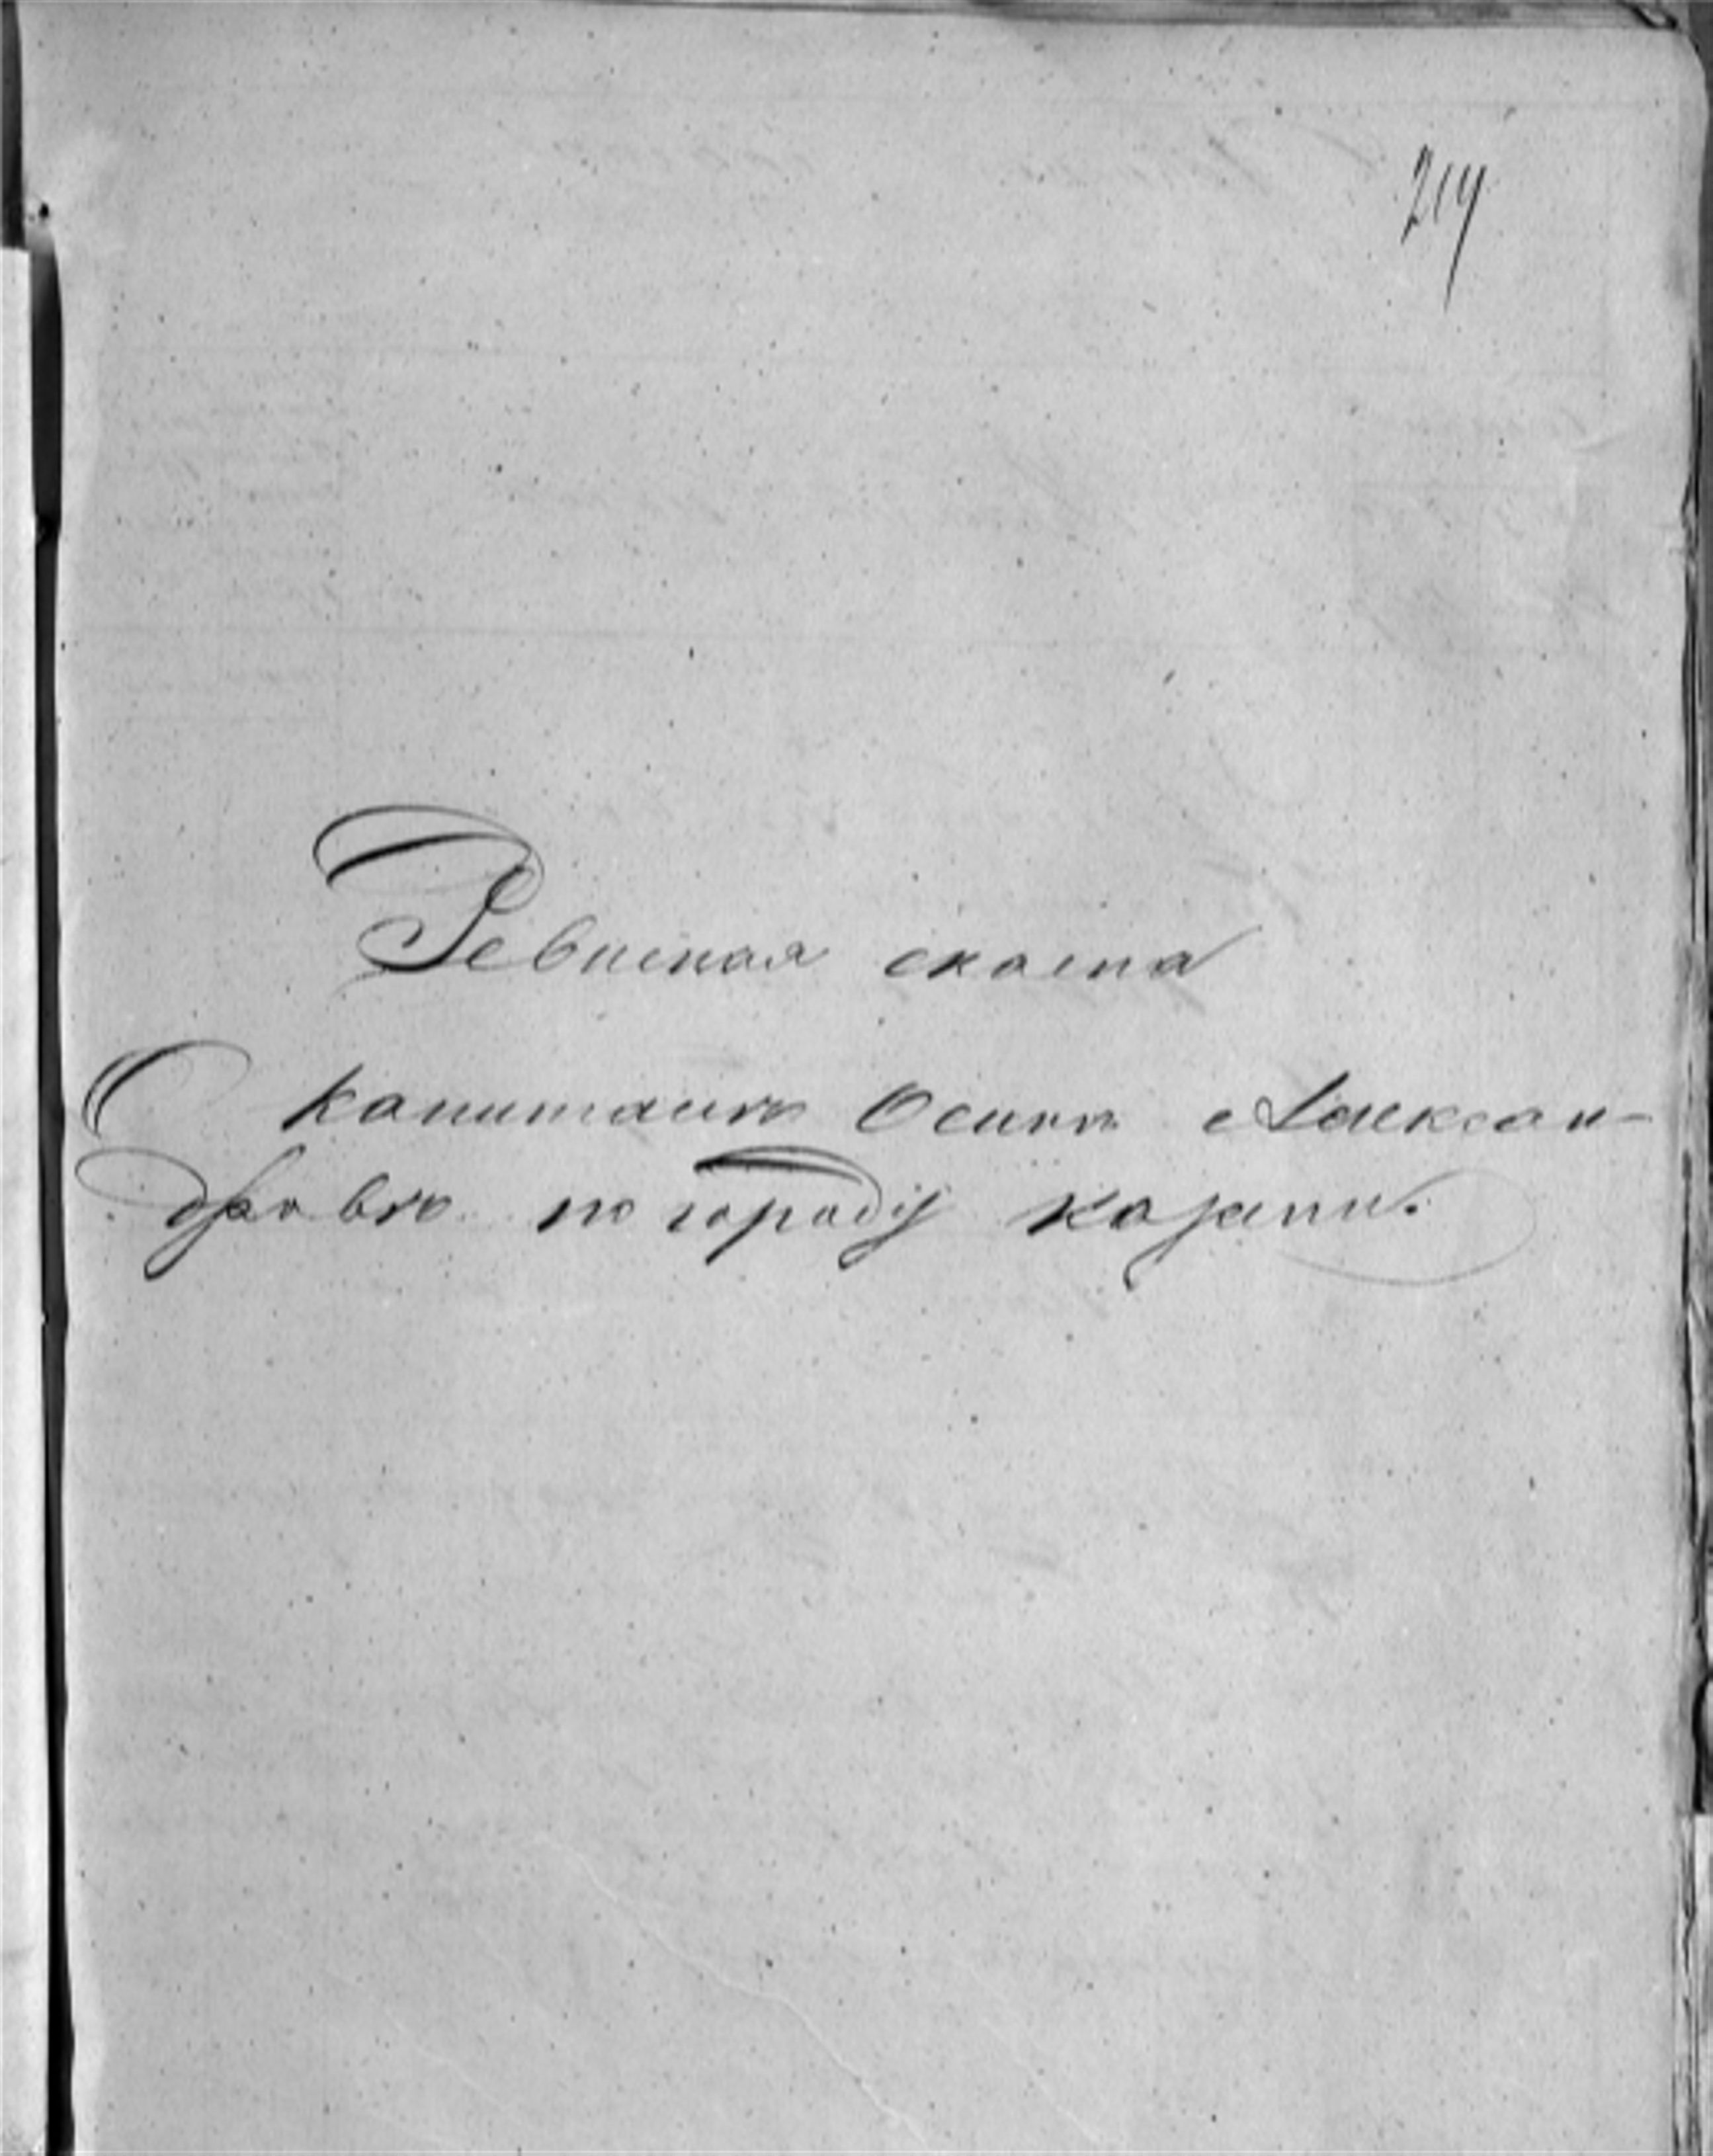 219
Ревиская скаска
О капитанѣ Осипѣ Алексан-
дровѣ по городу казани.